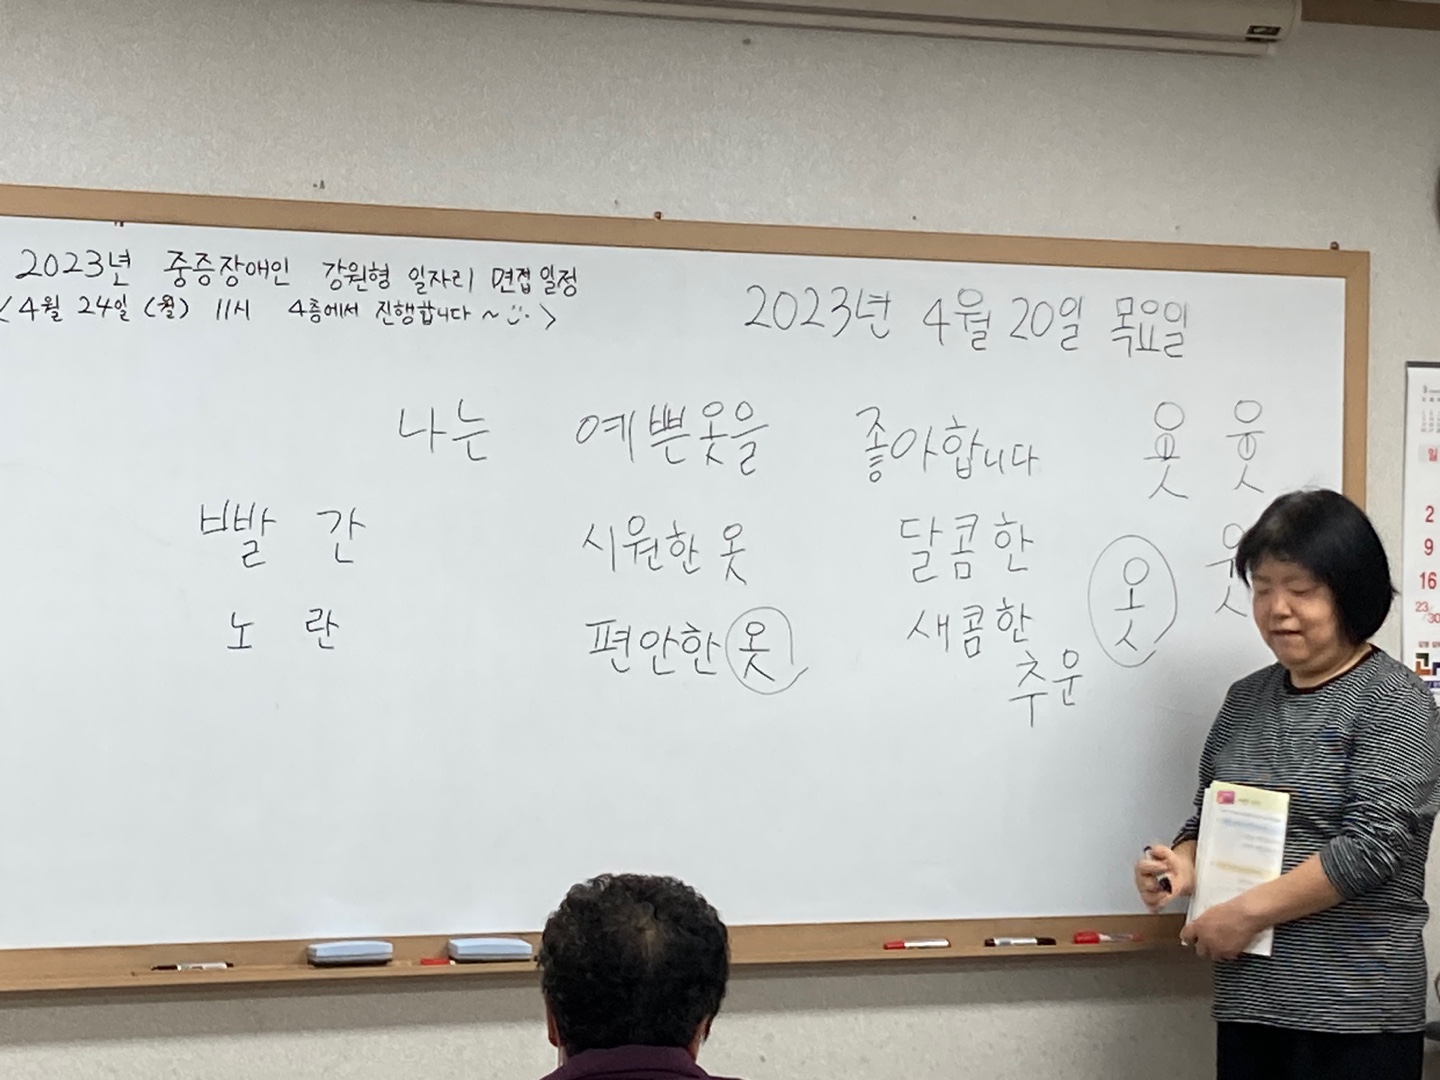 2023년 중증장애인 강원형 일자리 면접일정
<4월 24일 (월) 11시 4층에서 진행합니다 ~ >
2023년 4월 20일 목요일
나는 예쁜옷을 좋아합니다
빨 간 시원한 옷 달콤한
노 란 편안한 옷 새콤한
추운
옷
일
2
9
16
23/30